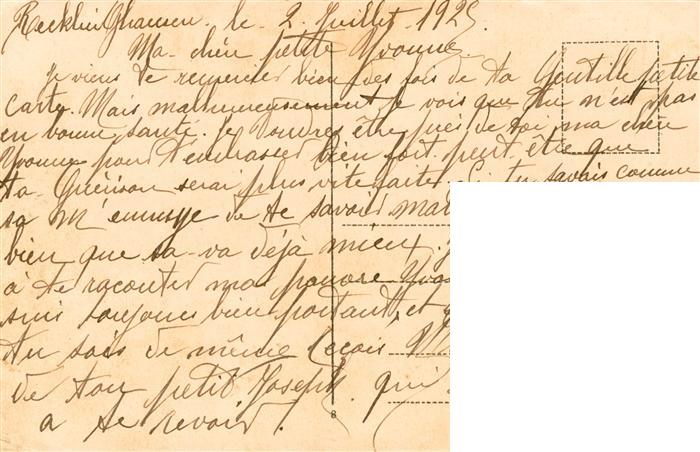 Recklinghausen. le. 2. Juillet. 1925.
Ma chèr petite Yvonne.
Je viens de remercier bien des fois de ta Gentille petite
carte. Mais malheureusement je vois que tu n'est pas
en bonne santé. Je voudrez être près de toi ma chèr
Yvonne pour t'embrasser bien fort peut être que
ta Guérison serai plus vite faite. Si tu savais comme
sa m'ennuye de te savoir mal
bien que sa-va déjà mieux.
à te raconter mas pauvre Yvo
suis toujours bien portant, et q
tu sois de même Reçois M
de ton petit Joseph. qui
a te revoir.
8